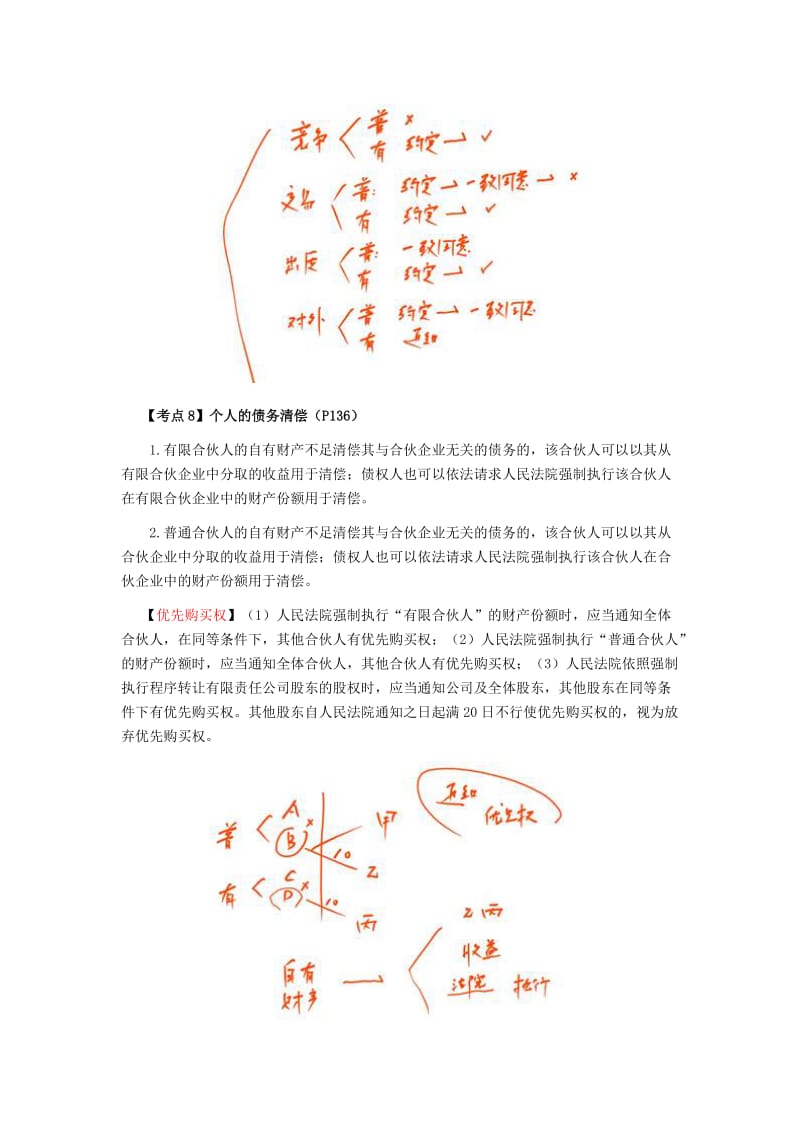 竞争 普 ×
有 约定 → ✓
交易 普: 约定 → 一致同意 → ×
有 约定 → ✓
出质 普: 一致同意
有 约定 → ✓
对外 普 约定 → 一致同意
有 通知
【考点 8】个人的债务清偿（P136）
1.有限合伙人的自有财产不足清偿其与合伙企业无关的债务的，该合伙人可以以其从
有限合伙企业中分取的收益用于清偿；债权人也可以依法请求人民法院强制执行该合伙人
在有限合伙企业中的财产份额用于清偿。
2.普通合伙人的自有财产不足清偿其与合伙企业无关的债务的，该合伙人可以以其从
合伙企业中分取的收益用于清偿；债权人也可以依法请求人民法院强制执行该合伙人在合
伙企业中的财产份额用于清偿。
【优先购买权】（1）人民法院强制执行“有限合伙人”的财产份额时，应当通知全体
合伙人，在同等条件下，其他合伙人有优先购买权；（2）人民法院强制执行“普通合伙人”
的财产份额时，应当通知全体合伙人，其他合伙人有优先购买权；（3）人民法院依照强制
执行程序转让有限责任公司股东的股权时，应当通知公司及全体股东，其他股东在同等条
件下有优先购买权。其他股东自人民法院通知之日起满 20 日不行使优先购买权的，视为放
弃优先购买权。
通知
优先权
普 A
B × 10 甲
乙
有 C
D × 10 丙
乙 丙
收益
自有 → 法院 执行
财产